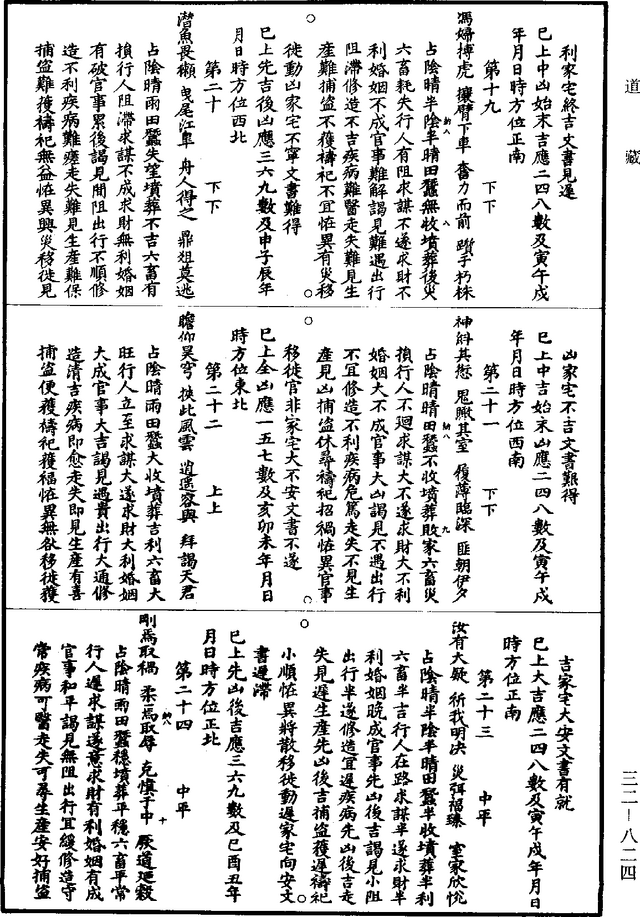 道藏
利家宅終吉文書見遲
已上中凶始末吉應二四八數及寅午戌
年月日時方位正南
第十九 下下
馮婦搏虎 攘臂下車 奮力而前 躓手朽株
占陰晴半陰半晴田蠶無收墳葬後災
六畜耗失行人有阻求謀不遂求財不
利婚姻不成官事難解謁見難遇出行
阻滯修造不吉疾病難醫走失難見生
產難捕盜不獲禱祀不宜恠異有災移
徙動凶家宅不寧文書難得
已上先吉後凶應三六九數及申子辰年
月日時方位西北
第二十 下下
潛魚畏獺 曳尾江臯 舟人得之 鼎俎莫逃
占陰晴雨田蠶失望墳葬不吉六畜有
損行人阻滯求謀不成求財無利婚姻
有破官事累後謁見間阻出行不順修
造不利疾病難瘥走失難見生產難保
捕盜難獲禱祀無益恠異興災移徙見
凶家宅不吉文書難得
已上中吉始末凶應二四八數及寅午戌
年月日時方位西南
第二十一 下下
神糾其愆 鬼瞰其室 履薄臨深 匪朝伊夕
占陰晴晴田蠶不收墳葬敗家六畜災
損行人不廻求謀大不遂求財大不利
婚姻大不成官事大凶謁見不遇出行
不宜修造不利疾病危篤走失不見生
產見凶捕盜休尋禱祀招禍恠異官事
移徙官非家宅大不安文書不遂
已上全凶應一五七數及亥卯未年月日
時方位東北
第二十二 上上
瞻仰昊穹 挾此風雲 逍遙容與 拜謁天君
占陰晴雨田蠶大收墳葬吉利六畜大
旺行人立至求謀大遂求財大利婚姻
大成官事大吉謁見遇貴出行大通修
造清吉疾病即愈走失即見生產有喜
捕盜便獲禱祀獲福恠異無咎移徙獲
吉家宅大安文書有就
已上大吉應二四八數及寅午戌年月日
時方位正南
第二十三 中平
汝有大疑 祈我明決 災弭福臻 室家欣悅
占陰晴半陰半晴田蠶半收墳葬半利
六畜半吉行人在路求謀半遂求財半
利婚姻晚成官事先凶後吉謁見小阻
出行半遂修造宜遲疾病先凶後吉走
失見遲生產先凶後吉捕盜獲遲禱祀
小順恠異將散移徙動遲家宅向安文
書遲滯
已上先凶後吉應三六九數及巳酉丑年
月日時方位正北
第二十四 中平
剛焉取禍 柔焉取辱 克慎于中 厥道廼穀
占陰晴雨田蠶穩墳葬平穩六畜平常
行人遲求謀遂意求財有利婚姻有成
官事和平謁見無阻出行宜緩修造守
常疾病可醫走失可尋生產安好捕盜
三二—八二四